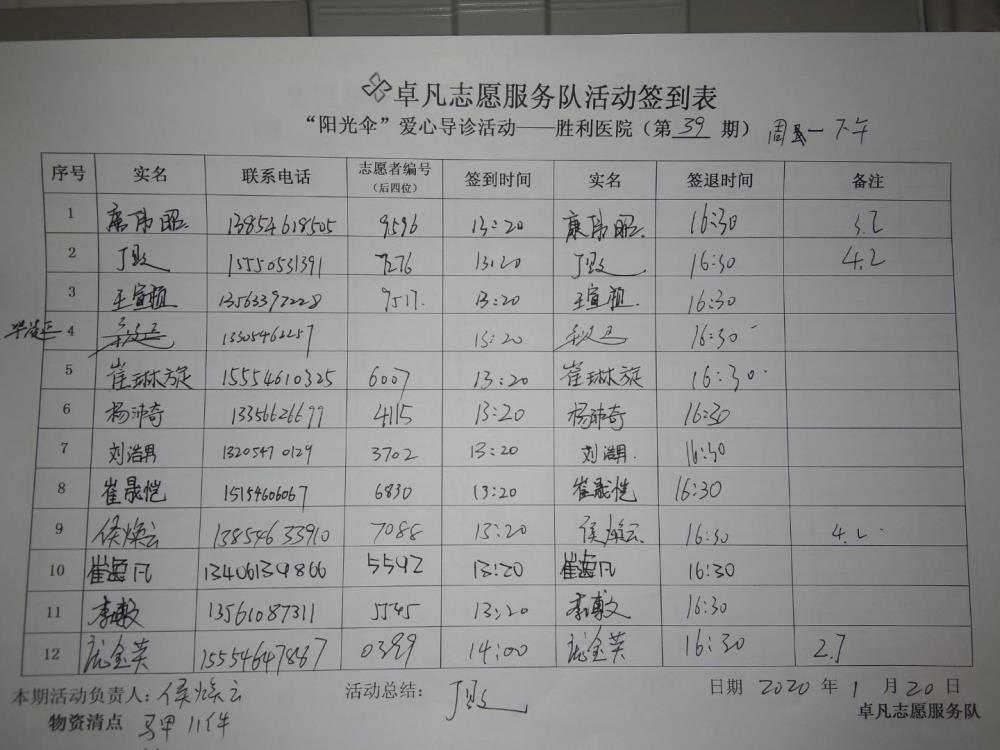 卓凡志愿服务队活动签到表
“阳光伞”爱心导诊活动——胜利医院（第 39 期） 周一下午
序号 实名 联系电话 志愿者编号（后四位） 签到时间 实名 签退时间 备注
1 13854618505 9596 13:20 16:30 3.2
2 丁毅 15550531391 7276 13:20 丁毅 16:30 4.2
3 王宣植 13563397228 9517. 13:20 王宣植 16:30
4 13305462257 13:20 16:30
5 崔琳旋 15554610325 6007 13:20 崔琳旋 16:30
6 杨沛奇 13356626699 4115 13:20 杨沛奇 16:30
7 刘浩男 13205470129 3702 13:20 刘浩男 16:30
8 崔晟恺 15154606067 6830 13:20 崔晟恺 16:30
9 侯焕云 13854633910 7088 13:20 侯焕云 16:30 4.2
10 13406139866 5592 13:20 16:30
11 李敏 13561087311 5545 13:20 李敏 16:30
12 庞金英 15554647887 0399 14:00 庞金英 16:30 2.7
本期活动负责人：侯焕云 活动总结：丁毅 日期 2020 年 1 月 20 日
物资清点 马甲 11件 卓凡志愿服务队